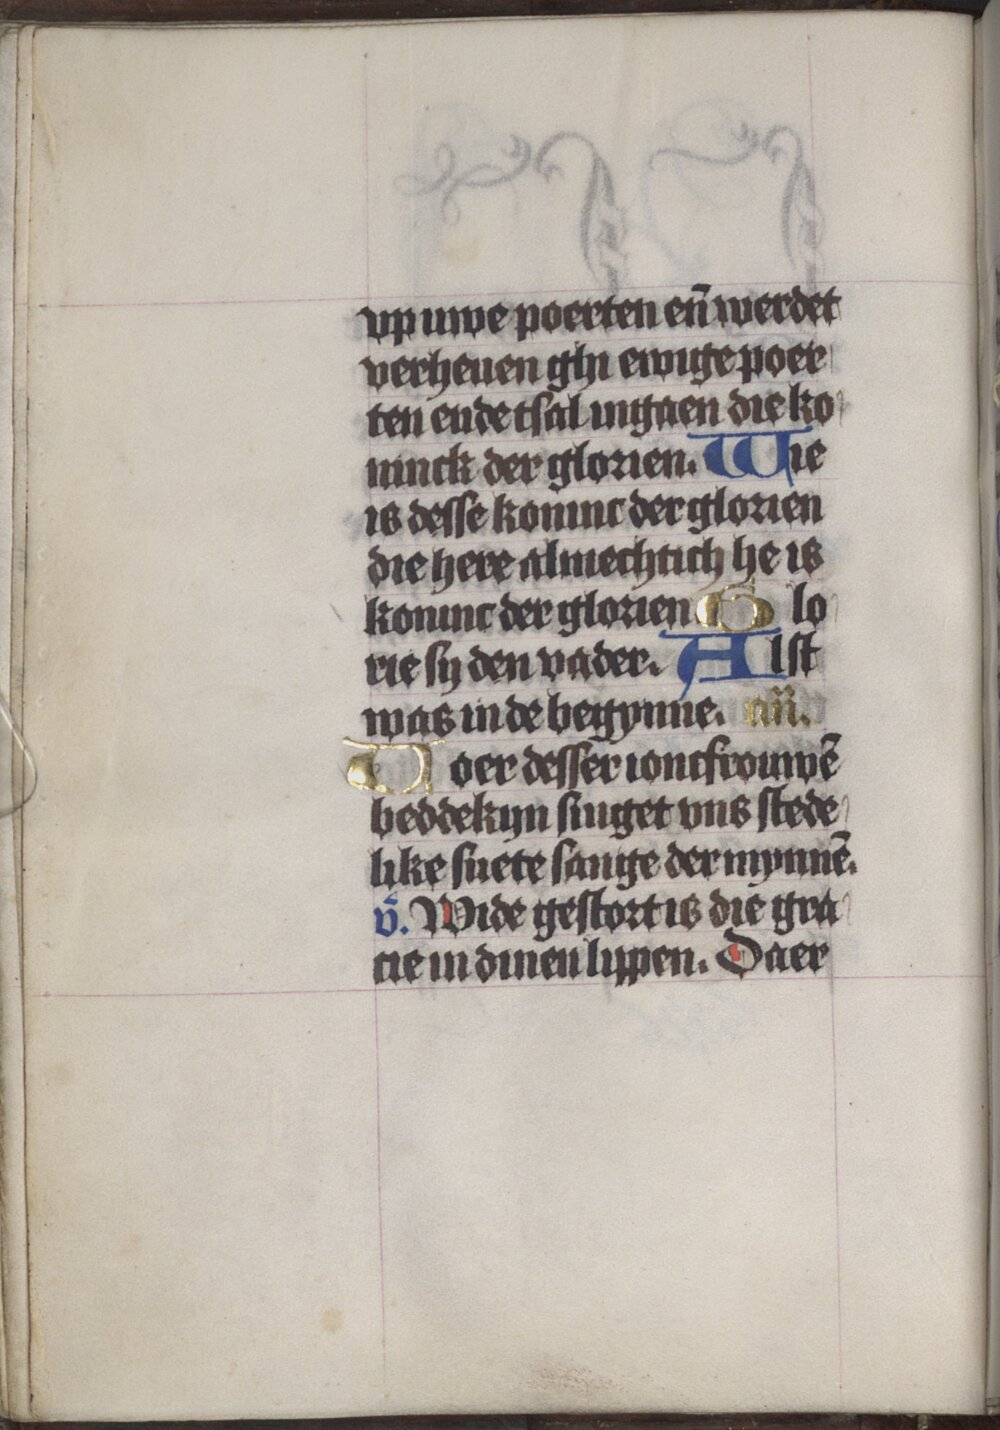 vp uwe poerten en̄ werdet
verheuen ghi ewige poer
ten ende tsal ingaen die ko
ninck der glorien. Wie
is desse koninc der glorien
die here almechtich he is
koninc der glorien Glo
rie sy den vader. Alst
was in de begynne. an̄.
Voer desser ioncfrouwē
beddekyn singet vns stede
like suete sange der mynnē.
v̄. Wide gestort is die gra
cie in dinen lippen. Daer